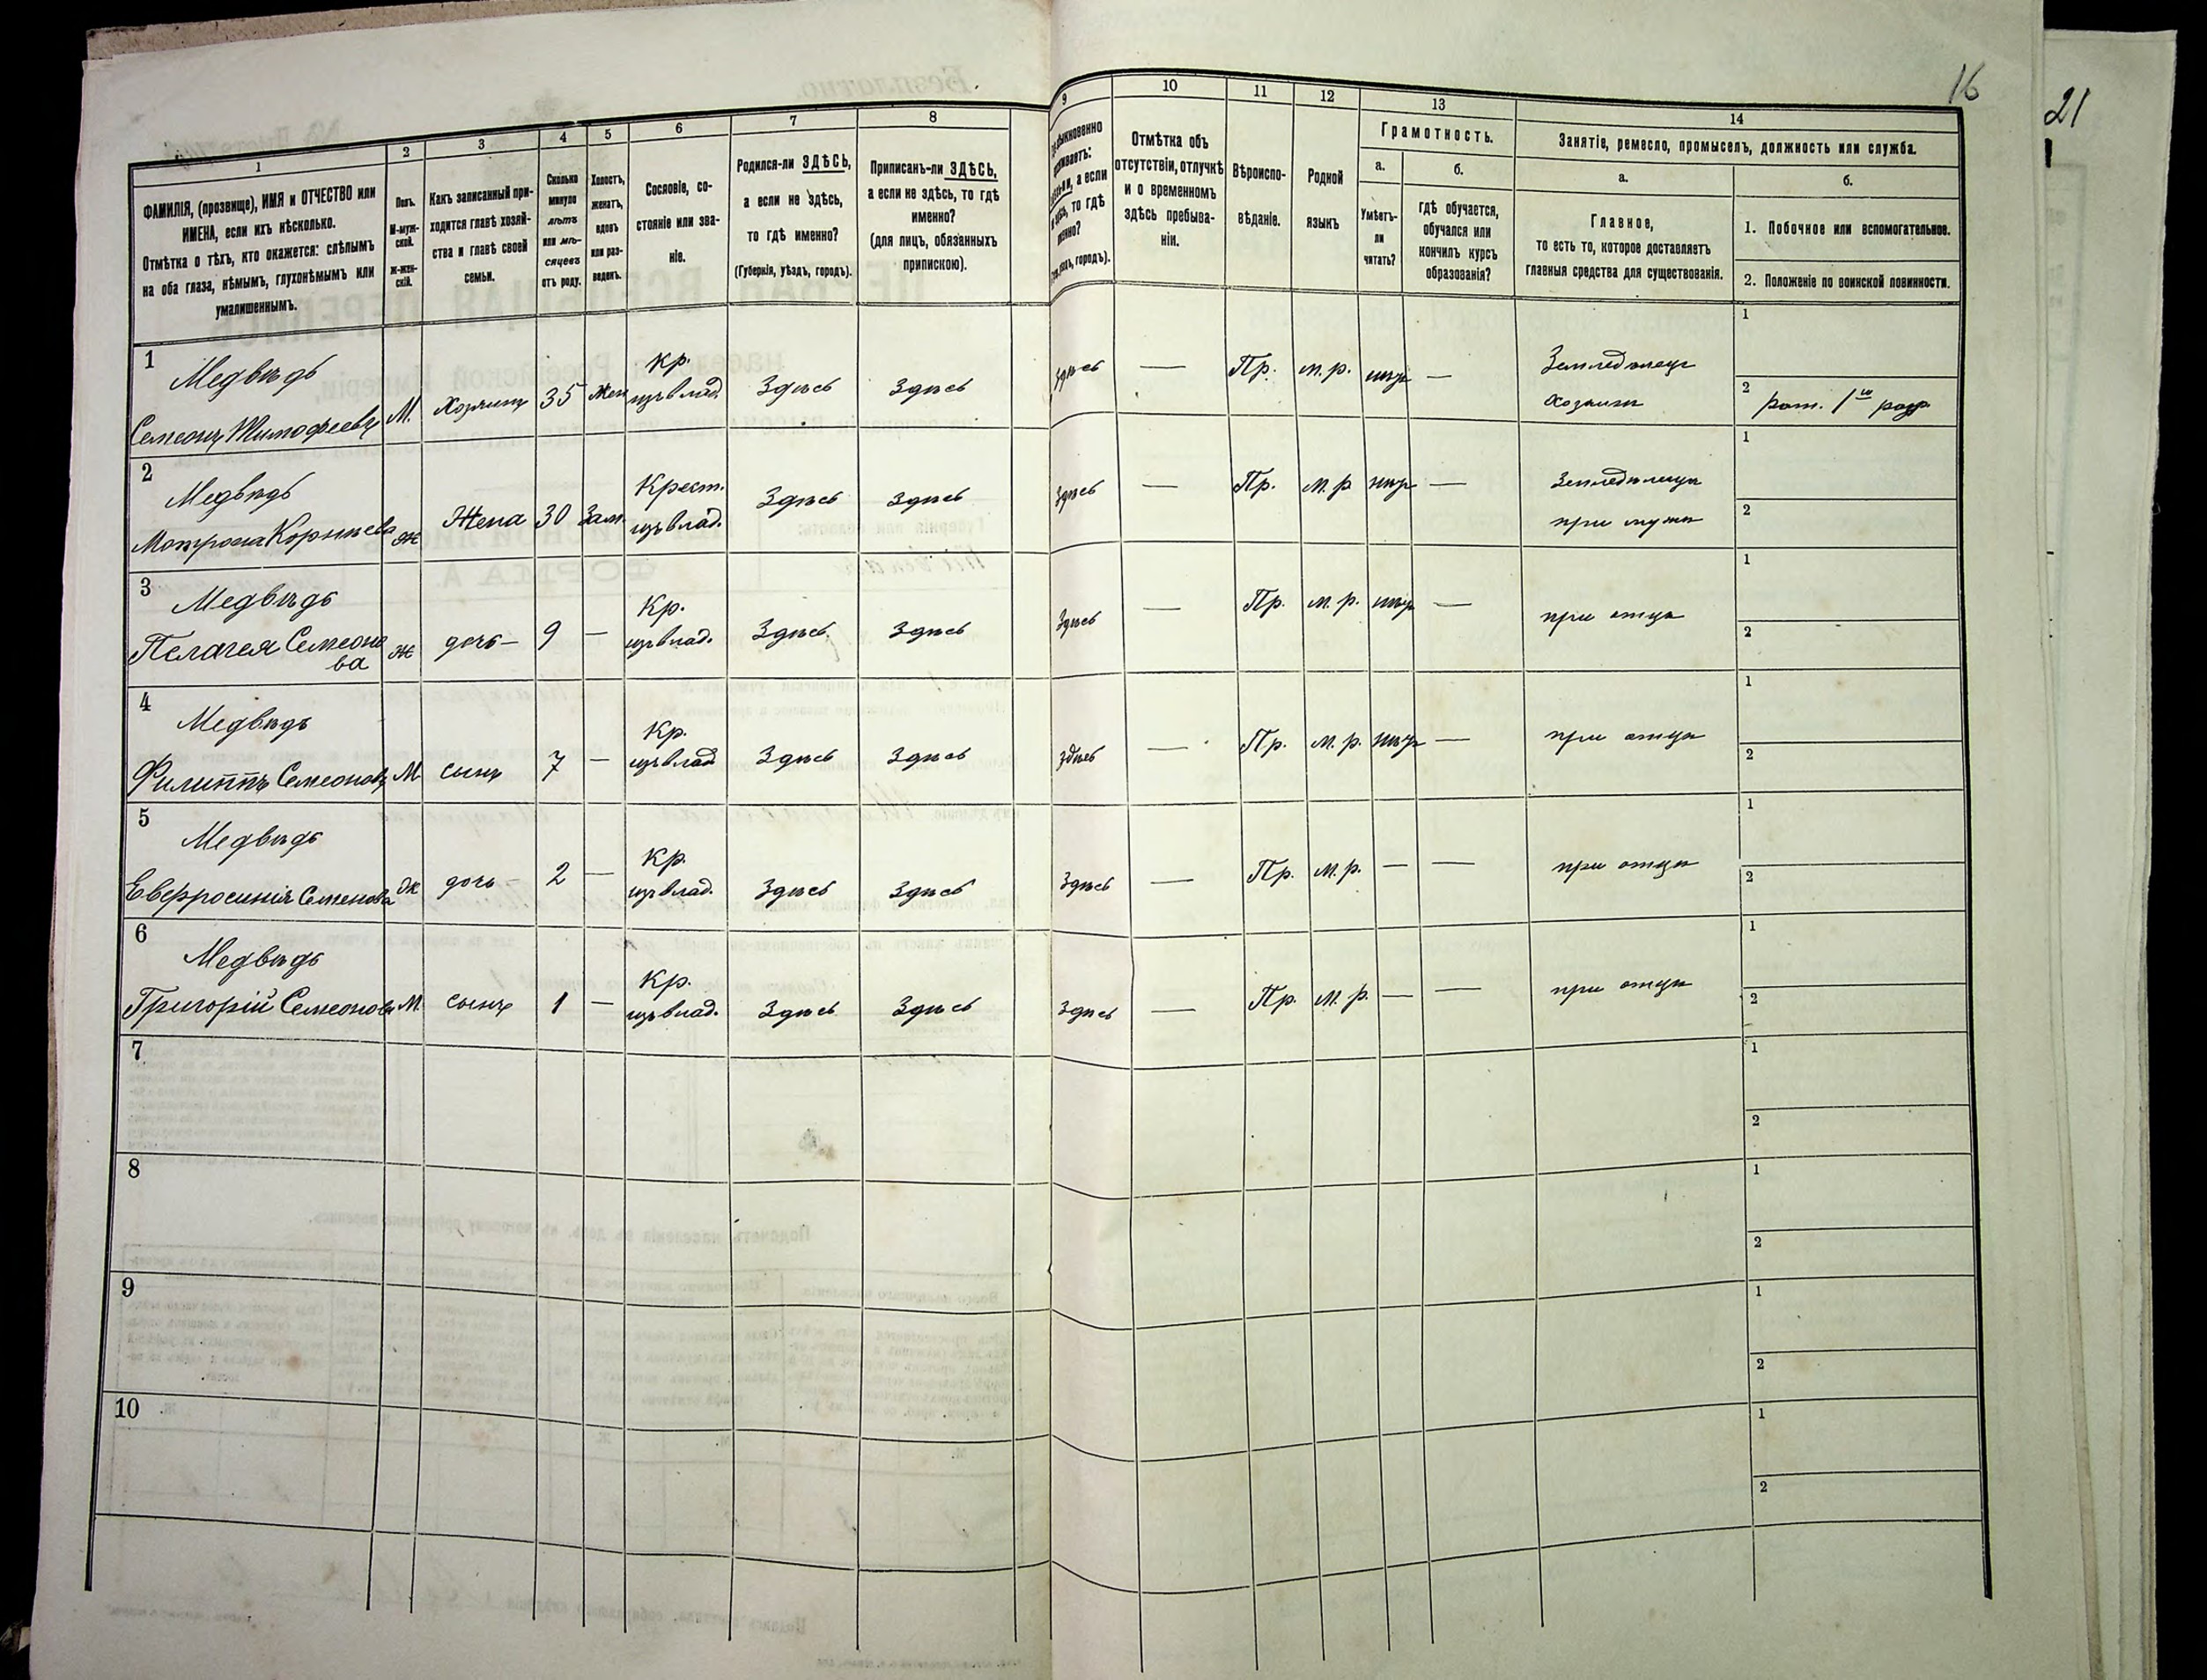 16
21
1
2
3
4
5
6
7
8
9
10
11
12
13
14
ФАМИЛІЯ, (прозвище), ИМЯ и ОТЧЕСТВО или
ИМЕНА, если ихъ нѣсколько.
Отмѣтка о тѣхъ, кто окажется: слѣпымъ
на оба глаза, нѣмымъ, глухонѣмымъ или
умалишеннымъ.
Полъ.
М-муж-
ской.
Ж-жен-
скій.
Какъ записанный при-
ходится главѣ хозяй-
ства и главѣ своей
семьи.
Сколько
минуло
лѣтъ
или мѣ-
сяцевъ
отъ роду.
Холостъ,
женатъ,
вдовъ
или раз-
веденъ.
Сословіе, со-
стояніе или зва-
ніе.
Родился-ли ЗДѢСЬ,
а если не здѣсь,
то гдѣ именно?
(Губернія, уѣздъ, городъ).
Приписанъ-ли ЗДѢСЬ,
а если не здѣсь, то гдѣ
именно?
(для лицъ, обязанныхъ
припискою).
Отмѣтка объ
отсутствіи, отлучкѣ
и о временномъ
здѣсь пребыва-
ніи.
Вѣроиспо-
вѣданіе.
Родной
языкъ
Грамотность.
а.
Умѣетъ-
ли
читать?
б.
гдѣ обучается,
обучался или
кончилъ курсъ
образованія?
Занятіе, ремесло, промыселъ, должность или служба.
а.
Главное,
то есть то, которое доставляетъ
главныя средства для существованія.
б.
1. Побочное или вспомогательное.
2. Положеніе по воинской повинности.
1
Медвѣдь
Семеонъ Тимофеевъ
М. Хозяинъ 35 жен
Кр.
изъ влад.
Здѣсь Здѣсь Здѣсь — Пр. м.р. нѣтъ —
Земледѣлецъ
хозяинъ
1
2 рат. 1го разр.
2
Медвѣдь
Мотрона Корнѣева
Ж Жена 30 Зам.
Крест.
изъ влад.
Здѣсь Здѣсь Здѣсь — Пр. м.р. нѣтъ —
Земледѣлица
при мужѣ
1
2
3
Медвѣдь
Пелагея Семеоно
ва
Ж дочь — 9 —
Кр.
изъ влад.
Здѣсь Здѣсь Здѣсь — Пр. м.р. нѣтъ — при отцѣ
1
2
4
Медвѣдь
Филиппъ Семеоновъ
М. сынъ 7 —
Кр.
изъ влад
Здѣсь Здѣсь здѣсь — Пр. м.р. нѣтъ — при отцѣ
1
2
5
Медвѣдь
Евфросинія Семенова
Ж дочь — 2 —
Кр.
изъ влад.
Здѣсь Здѣсь Здѣсь — Пр. м.р. — — при отцѣ
1
2
6
Медвѣдь
Григорій Семеоновъ
М. сынъ 1 —
Кр.
изъ влад.
Здѣсь Здѣсь Здѣсь — Пр. м.р. — — при отцѣ
1
2
7
1
2
8
1
2
9
1
2
10
1
2